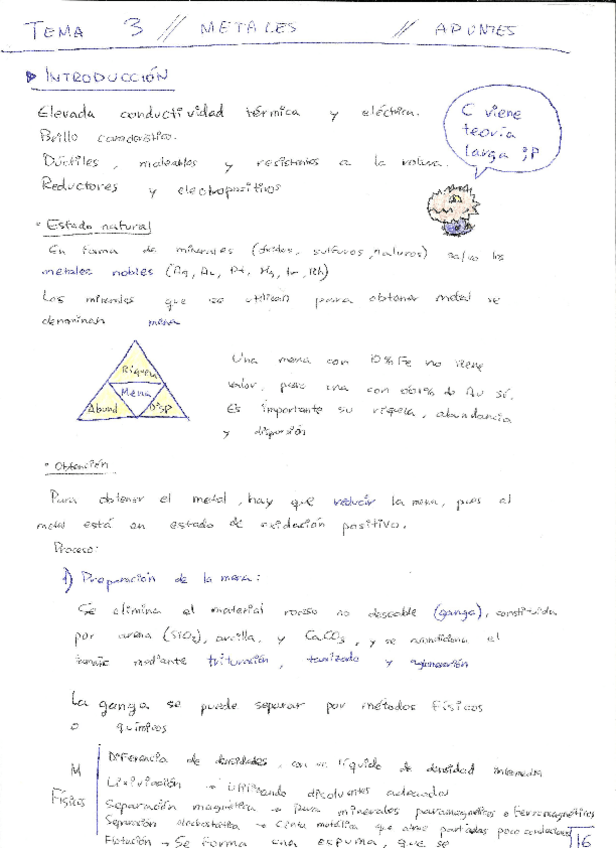 TEMA 3 // METALES // APUNTES
INTRODUCCIÓN
Elevada conductividad térmica y eléctrica.
Brillo característico.
Dúctiles, maleables y resistentes a la rotura.
Reductores y electropositivos
C viene
teoría
larga ;P
• Estado natural
En forma de minerales (óxidos, sulfuros, haluros) salvo los
metales nobles (Ag, Au, Pt, Hg, Ir, Rh)
Los minerales que se utilizan para obtener metal se
denominan mena
Riqueza
Mena
Abund DISP
Una mena con 10% Fe no tiene
valor, pero una con % de Au sí.
Es importante su riqueza, abundancia
y dispersión
• Obtención
Para obtener el metal, hay que reducir la mena, pues el
metal está en estado de oxidación positivo.
Proceso:
1) Preparación de la mena:
Se elimina el material rocoso no deseable (ganga), constituida
por arena (SiO2), arcilla, y CaCO3, y se acondiciona el
mediante trituración, tamizado y aglomeración
La ganga se puede separar por métodos físicos
o químicos
M
Físicos
Diferencia de densidades, con un líquido de densidad intermedia
Lixiviación → Utilizando disolventes adecuados
Separación magnética → para minerales paramagnéticos o ferromagnéticos
Separación electrostática → Cinta metálica que atrae partículas poco conductoras
Flotación → Se forma una espuma, que se
16